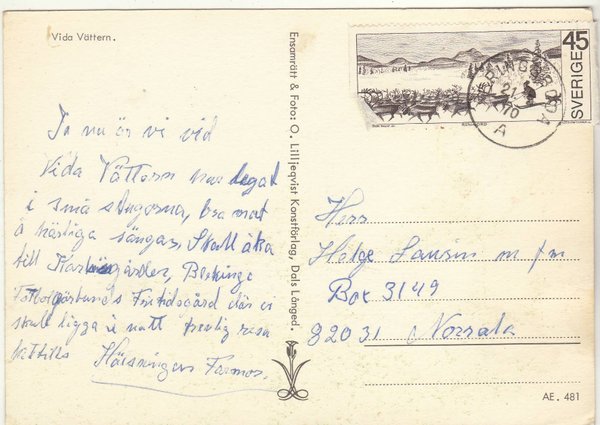 Vida Vättern.
Ja nu är vi vid
Vida Vättern har legat
i små stugorna, bra mat
å härliga sängar, Skall åka
till
Blekinge
Fritidsgård där vi
skall ligga i natt trevlig resa
hittills Hälsningar Farmor.
Ensamrätt & Foto: O. Lilljeqvist Konstförlag, Dals Långed.
SVERIGE 45
21.
70
A
Herr
Helge Larsson m fm
Box 3149
82031 Norrala
AE. 481